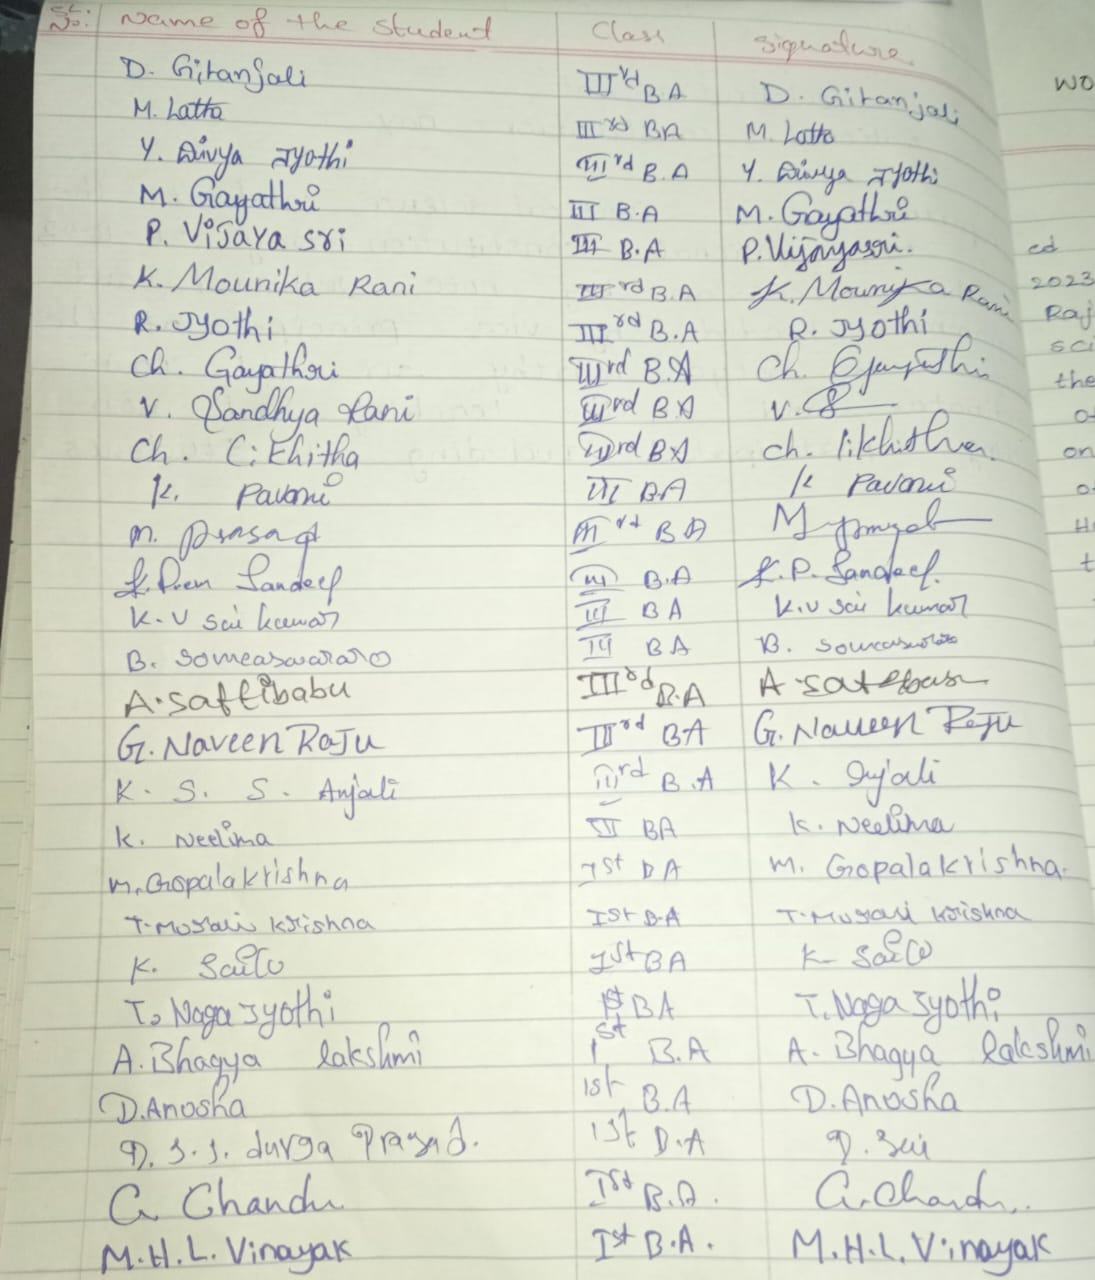 SL. No: Name of the Student Class Signature
D. Gitanjali IIIrd BA D. Gitanjali
M. Latha IIIrd BA M. Latha
Y. Divya Jyothi IIIrd B.A Y. Divya Jyothi
M. Gayathri III B.A M. Gayathri
P. Vijaya sri III B.A P. Vijayasri.
K. Mounika Rani IIIrd B.A K. Mounika Rani
R. Jyothi IIIrd B.A R. Jyothi
Ch. Gayathri IIIrd B.A Ch.
V. Sandhya Rani IIIrd BA V.
Ch. Likhitha IIIrd BA ch. likhitha.
K. Pavani III BA K Pavani
M. Prasad IIIrd BA M
K. Prem Sandeep III B.A K.P. Sandeep.
K.V Sai kumar III BA K.V Sai kumar
B. Someaswararao III BA B.
A. Sattibabu IIIrd B.A A
G. Naveen Raju IIIrd BA G. Naveen Raju
K. S. S. Anjali IIIrd B.A K. Anjali
K. Neelima III BA K. Neelima
M. Gopalakrishna 1st BA M. Gopalakrishna.
T. Murali Krishna Ist B.A T. Murali Krishna
K. 1st BA K
T. Naga Jyothi 1st BA T. Naga Jyothi
A. Bhagya lakshmi 1st B.A A. Bhagya lakshmi
D. Anosha 1st B.A D. Anosha
D. S. S. durga Prasad. 1st B.A D. Sai
G Chandu Ist B.A. G. Chandu
M.H.L. Vinayak Ist B.A. M.H.L. Vinayak
wo
ed
2023
Raj
sci
the
on